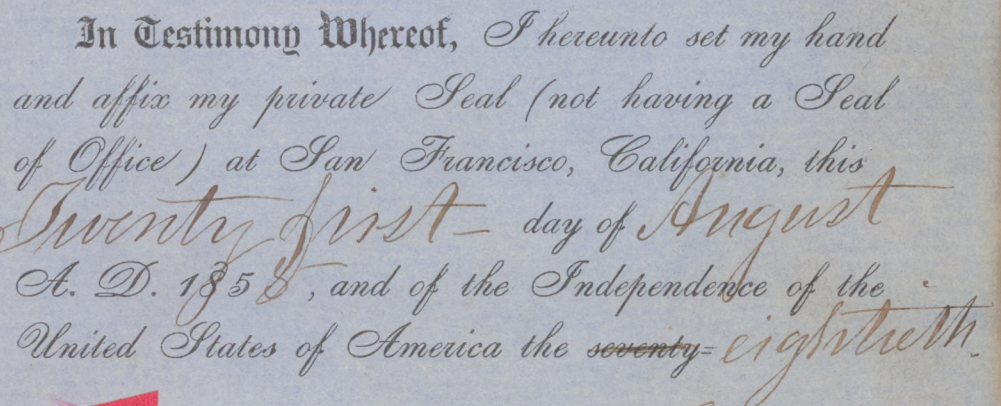 In Testimony Whereof, I hereunto set my hand
and affix my private Seal (not having a Seal
of Office) at San Francisco, California, this
Twenty first— day of August
A. D. 1855, and of the Independence of the
United States of America the seventy= eightieth.